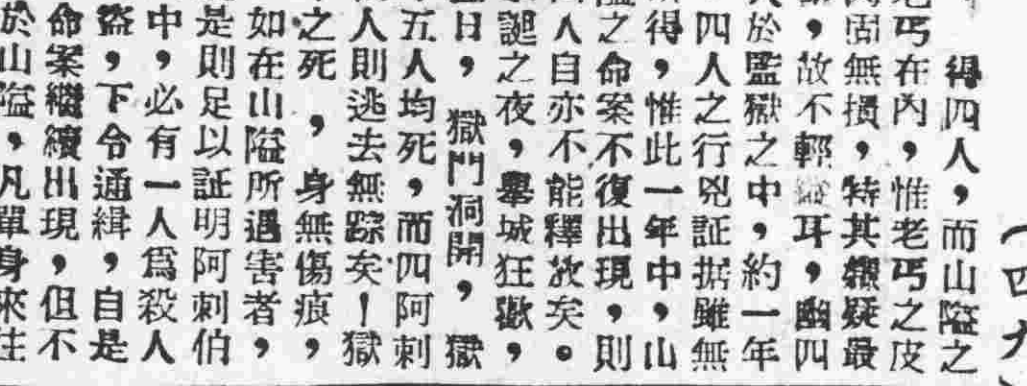 （四九
得四人，而山隘之
老丐在內，惟老丐之皮
固無損，特其嫌疑最
，故不輕耳，幽四
人於監獄之中，約一年
四人之行兇証据雖無
得，惟此一年中，山
隘之命案不復出現，則
人自亦不能釋放矣。
誕之夜，舉城狂歡，
日，獄門洞開，獄
五人均死，而四阿刺
人則逃去無踪矣！獄
之死，身無傷痕，
如在山隘所遇害者，
是則足以証明阿刺伯
中，必有一人爲殺人
盜，下令通緝，自是
命案繼續出現，但不
於山隘，凡單身來往